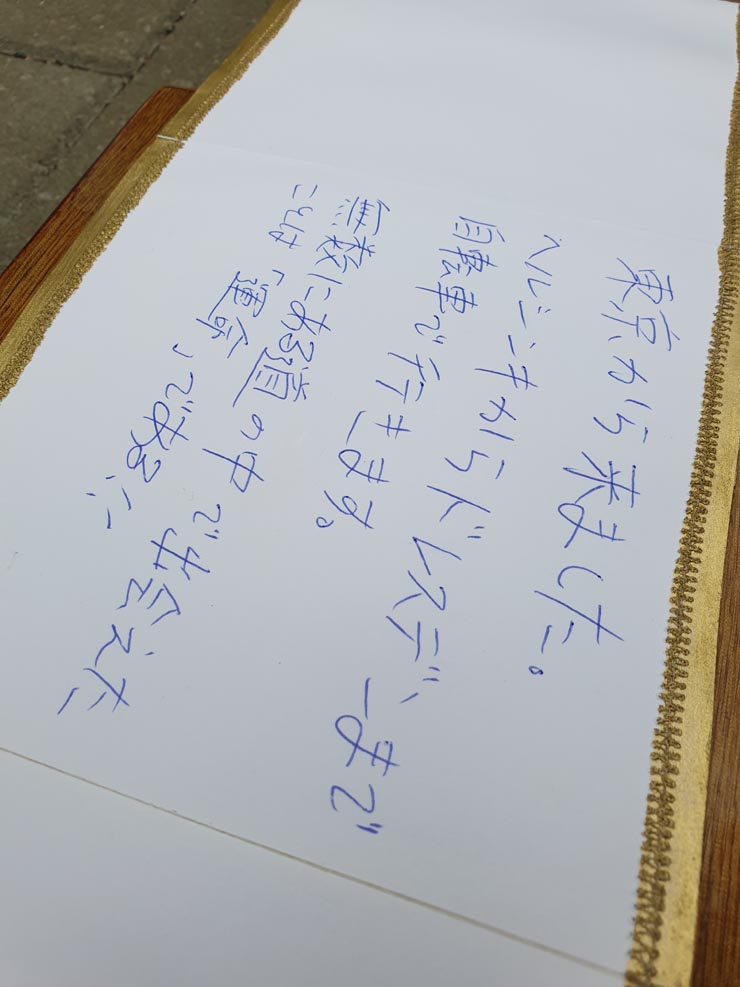 東京から来ました。
ヘルシンキからドレスデンまで
自転車で行きます。
無数にある道の中で出会えた
ことは「運命」である!!